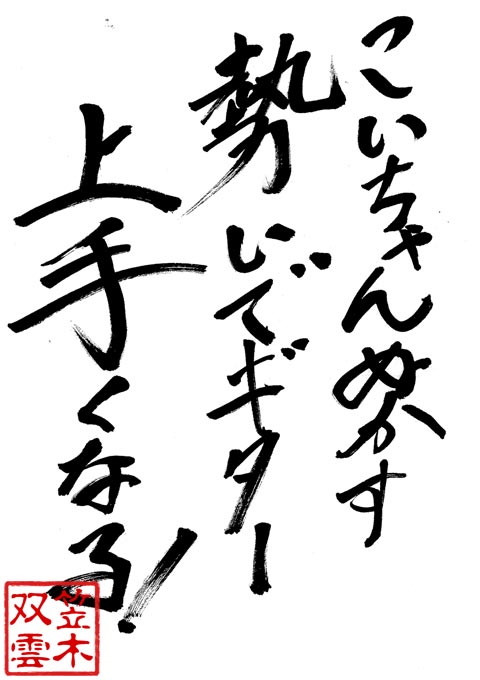 こいちゃんぬかす
勢いでギター
上手くなる!
竺木
双雲